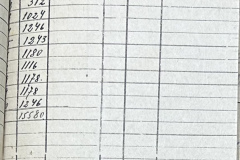 312
1024
1246
1243
1180
1116
1178
1178
1246
15580